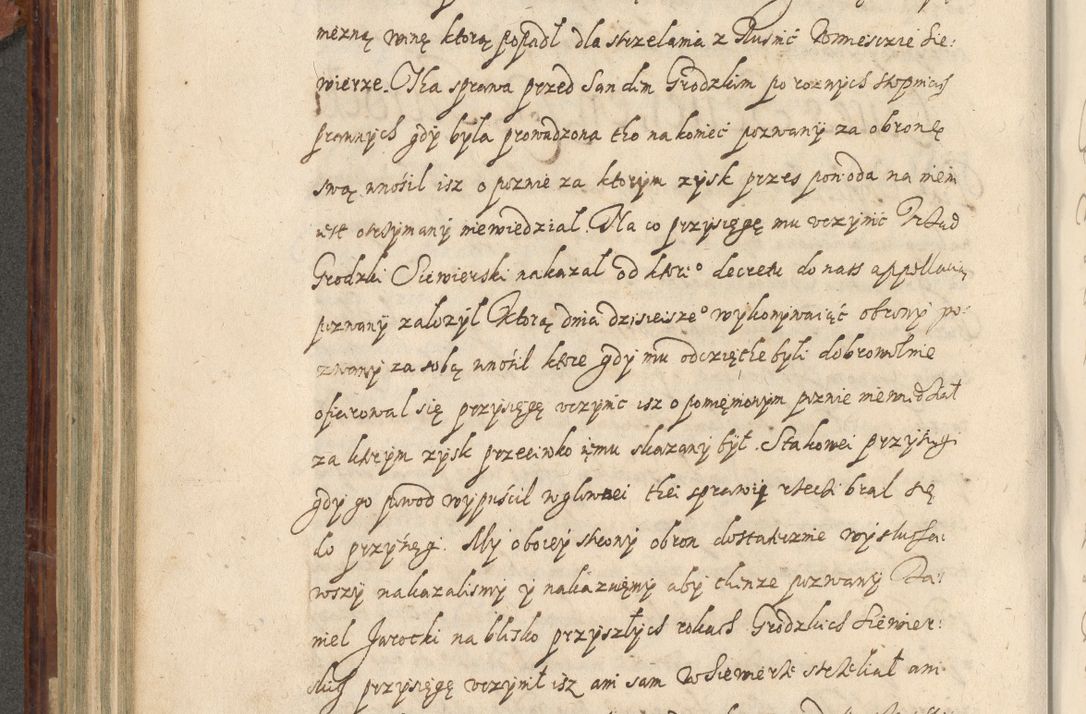 mezną winę ktorą popadł dla strzelania z Rusnić w miescie Sie:
wierze. Tha sprawa przed Sandem Grodzkim po roznych stopniach
prawnych gdy była prowadzona tho na koniec pozwany za obronę
swą wnosił isz o poznie za ktorym zysk przes powoda na niem
iest otrzymany niewiedział. Na co przysięgę mu uczynic Urząd
Grodzki Siewierski nakazał od ktore° decretu do nas appellacią
pozwany założył Ktorą dnia dzisieisze° wykonywaiąć obrony po:
zwany za sobą wnosił ktore gdy mu odczięthe byli dobrowolnie
ofiarował się przysięgę uczynic isz o pomięnionym poznie niewiedział
za ktorym zysk przeciwko iemu skazany był. Stakowei przysięgi
gdy go powod wypuscił w głownei thei sprawie rzecki brał się
do przysięgi. My oboiey strony obron dostatecznie wysłucha:
wszy nakazalismy y nakazuięmy aby thenze pozwany Da:
niel Jarocki na blisko przyszłych rokach Grodzkich Siewier:
skich przysięgę uczynił isz ani sam w Siewierze strzelał ani